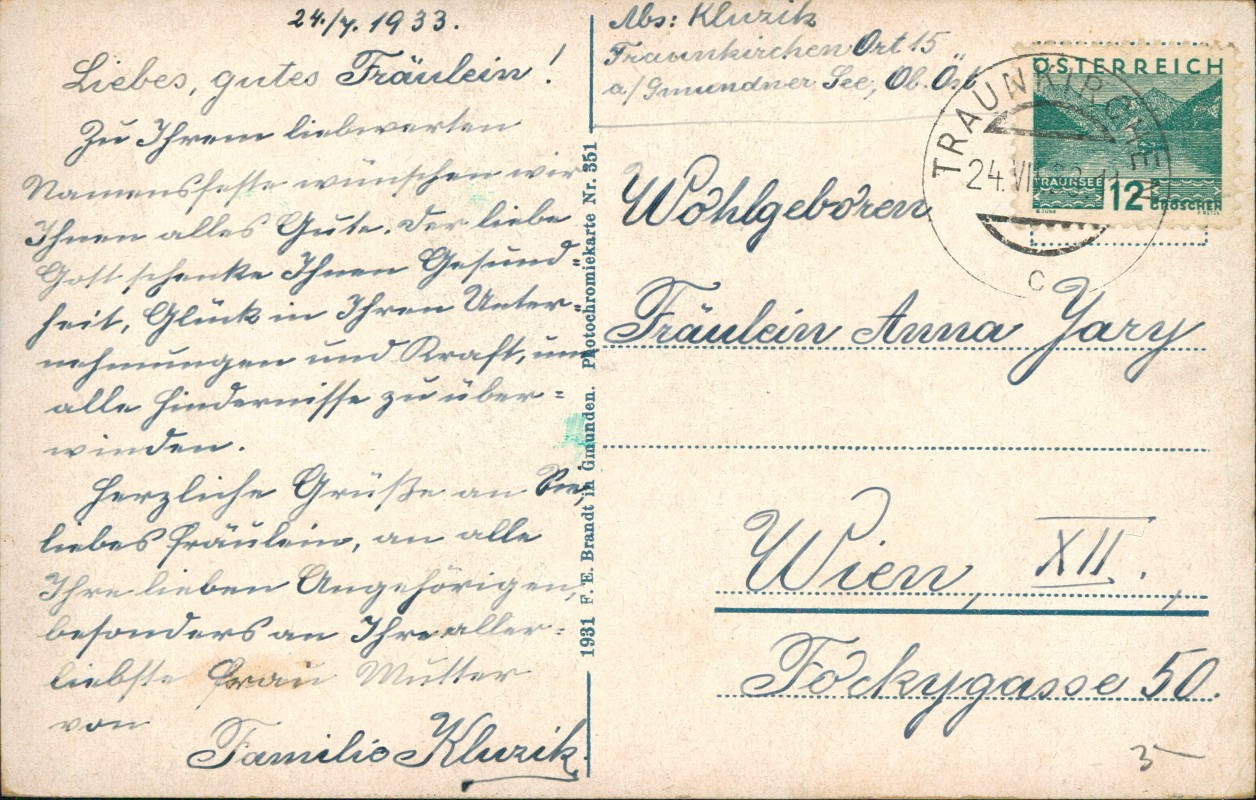 24./7. 1933.
Liebes, gutes Fräulein!
Zu Ihrem liebwerten
Namensfeste wünschen wir
Ihnen alles Gute. Der liebe
Gott schenke Ihnen Gesund=
heit, Glück in Ihren Unter=
nehmungen und Kraft, um
alle Hindernisse zu über=
winden.
Herzliche Grüße an Sie,
liebes Fräulein, an alle
Ihre lieben Angehörigen,
besonders an Ihre aller=
liebste Frau Mutter
von
Familie Kluzik
1931 F. E. Brandt in Gmunden. Photochromiekarte Nr. 351
Abs: Kluzik
Traunkirchen Ort 15
a/ Gmundner See, Ob. Öst
ÖSTERREICH
TRAUNSEE 12 GROSCHEN
TRAUNKIRCHEN
24.VII
C
Wohlgeboren
Fräulein Anna Jary
Wien, XII.,
Fockygasse 50.
3-